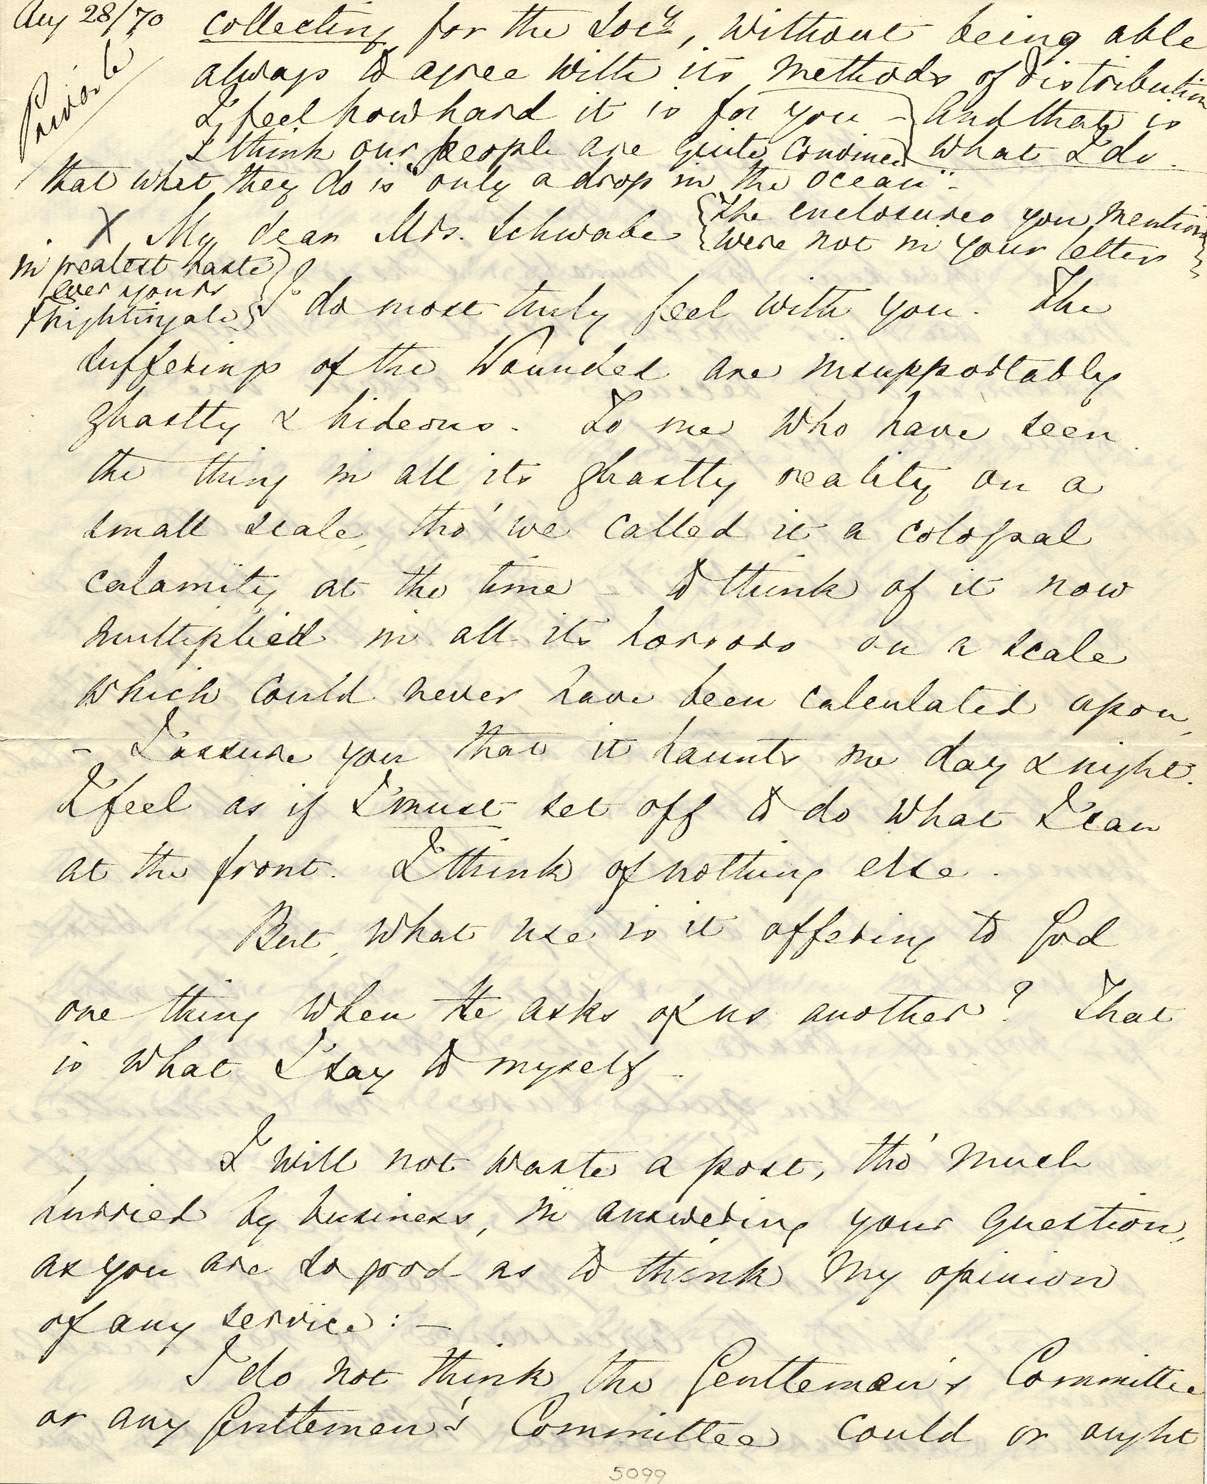 Aug 28/70
Private
collecting for the Socy, without being able
always to agree with its methods of distribution
I feel how hard it is for you – And that is
I think our people are quite convinced what I do.
that what they do is "only a drop in the ocean" –
X My dear Mrs. Schwabe
The enclosures you mention
were not in your letter
in greatest haste
ever yours
F Nightingale
I do most truly feel with you. The
sufferings of the Wounded are insupportably
ghastly & hideous. To me who have seen
the thing in all its ghastly reality on a
small scale, tho' we called it a colossal
calamity at the time – to think of it now
multiplied in all its horrors on a scale
which could never have been calculated upon,
– I assure you that it haunts me day & night.
I feel as if I must set off to do what I can
at the front. I think of nothing else.
But, what use is it offering to God
one thing when He asks of us another? That
is what I say to myself –
I will not waste a post, tho' much
hurried by business, in answering your question,
as you are so good as to think my opinion
of any service: –
I do not think the Gentlemen's Committee
or any Gentlemen's Committee could or ought
5099